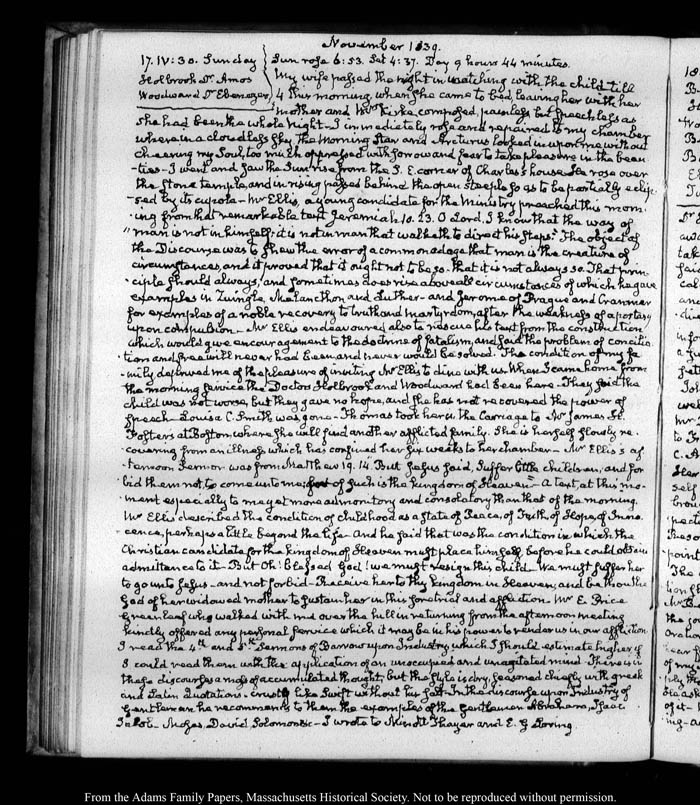 November 1839.
17. IV:30. Sunday Sun rose 6:53. Set 4:37. Day 9 hours 44 minutes.
Holbrook Dr. Amos My wife passed the night in watching with the child till
Woodward Dr Ebenezer 4 this morning, when she came to bed, leaving her with her
mother and Mrs Kirke, composed, painless but speechless as
she had been the whole night. I immediately rose and repaired to my chamber
where in a cloudless sky the morning Star and Arcturus looked in upon me without
cheering my Soul, too much oppressed with sorrow and fear to take pleasure in the beau
-ties. I went and saw the Sun rise from the S. E. corner of Charles's house. He rose over
the Stone temple, and in rising passed behind the open steeple so as to be partially eclip
-sed by its cupola. Mr Ellis, a young candidate for the Ministry preached this morn
-ing from that remarkable text Jeremiah 10. 23. O Lord. I know that the way of
"man is not in himself: it is not in man that walketh to direct his steps." The object of
the Discourse was to shew the error of a common adage that man is the creature of
circumstances, and it proved that it ought not to be so. that it is not always so. That prin
-ciple should always, and sometimes does rise above all circumstances of which he gave
examples in Zwingle, Melancthon and Luther – and Jerome of Prague and Cranmer
for examples of a noble recovery to truth and martyrdom, after the weakness of apostasy
upon compulsion – Mr Ellis endeavoured also to rescue his text from the construction
which would give encouragement to the doctrine of fatalism, and said the problem of concilia
-tion and free will never had been and never would be solved. The condition of my fa
-mily deprived me of the pleasure of inviting Mr Ellis to dine with us. When I came home from
the morning service the Doctors Holbrook and Woodward had been here. They said the
child was not worse, but they gave no hope, and she has not recovered the power of
speech – Louisa C. Smith was gone – Thomas took her in the Carriage to Mr James H.
Foster's at Boston, where she will find another afflicted family. She is herself slowly re
covering from an illness which has confined her six weeks to her chamber – Mr Ellis's af
-ternoon Sermon was from Matthew 19. 14. But Jesus said, Suffer little children, and for
bid them not, to come unto me; for of such is the kingdom of Heaven" – a text at this mo
-ment especially to me yet more admonitory and consolatory than that of the morning.
Mr Ellis described the condition of childhood as a state of Peace, of Faith, of Hope, of Inno
cence, perhaps a little beyond the life – And he said that was the condition in which the
Christian candidate for the kingdom of Heaven must place himself, before he could obtain
admittance to it – But Oh! blessed God! we must resign this child. We must suffer her
to go unto Jesus – and not forbid – Receive her to thy kingdom in Heaven, and be thou the
God of her widowed mother to sustain her in this sore trial and affliction. Mr E. Price
Greenleaf who walked with me over the hill in returning from the afternoon meeting
kindly offered any personal service which it may be in his power to render us in our affliction
I read the 4th. and 5th. Sermons of Barrow upon Industry, which I should estimate higher if
I could read them with the application of an unoccupied and unagitated mind. There is in
these discourses a mass of accumulated thought, but the style is dry, seasoned chiefly with greek
and Latin Quotations – crusty like Swift without his salt. In the discourse upon Industry of
Gentlemen he recommends to them the examples of the Gentlemen Abraham, Isaac
Jacob – Moses, David Solomon &c – I wrote to Minott Thayer and E. G. Loring
From the Adams Family Papers, Massachusetts Historical Society. Not to be reproduced without permission.